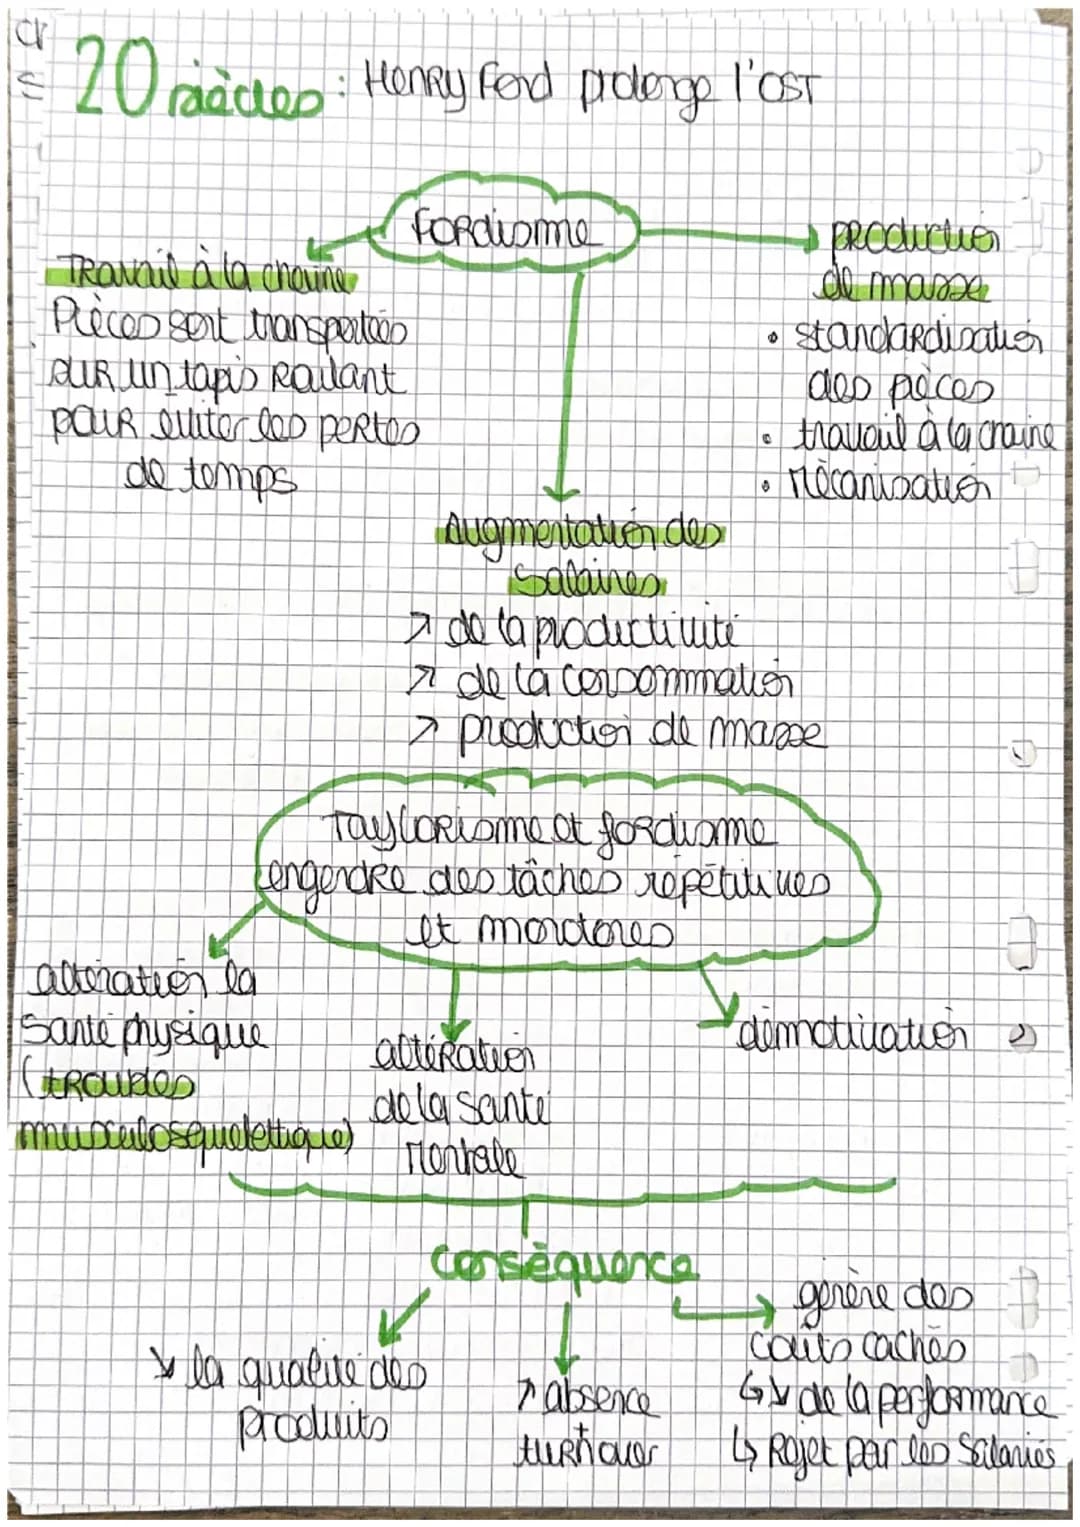 20 siècles : Henry Ford prolonge l'OST
Fordisme
Travail à la chaine
Pièces sont transportées
sur un tapis roulant
pour éviter les pertes
de temps
production
de masse
• standardisation
des pièces
• travail à la chaine
• Mécanisation
Augmentation des
Salaires
↗ de la productivité
↗ de la consommation
↗ production de masse
Taylorisme et fordisme
engendre des tâches répétitives
et monotones
altération la
Santé physique
(troubles
musculosquelettique)
altération
de la santé
Mentale
démotivation
Conséquence
↘ la qualité des
produits
↗ absence
+
turnover
génère des
coûts cachés
↳ ↘ de la performance
↳ Rejet par les Salariés